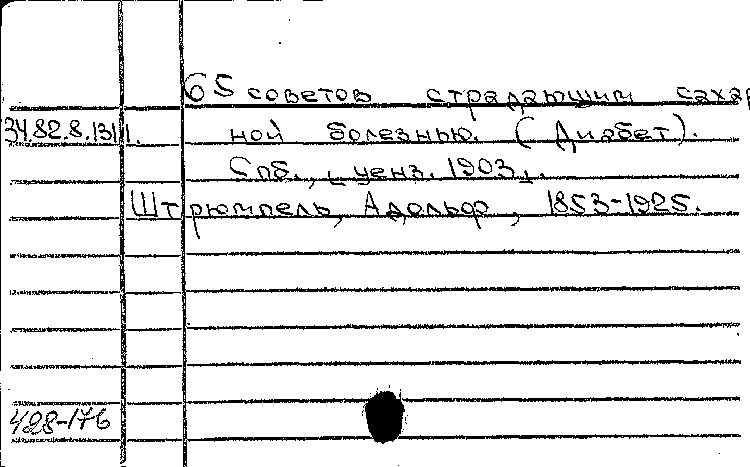 65 советов страдающим сахар
34.82.8.131 1. ной болезнью. (Диабет).
Спб., ценз. 1903.
Штрюмпель, Адольф, 1853-1925.
428-176